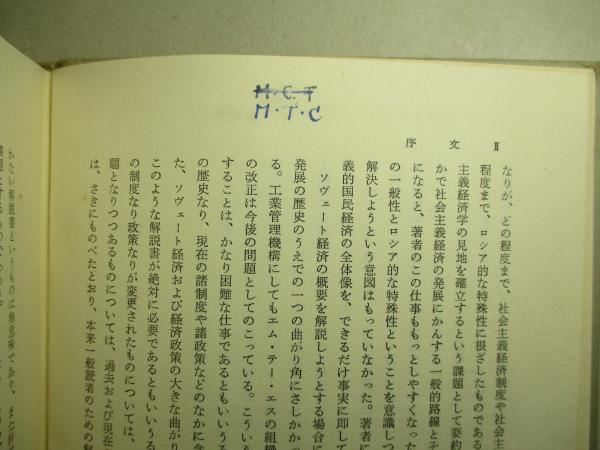 M.C.T
M.T.C
序文 II
なりが、どの程度まで、社会主義経済制度や社会主
程度まで、ロシア的な特殊性に根ざしたものである
主義経済学の見地を確立するという課題として要約
かで社会主義経済の発展にかんする一般的路線とそ
になると、著者のこの仕事ももっとしやすくなった
の一般性とロシア的な特殊性ということを意識しつ
解決しようという意図はもっていなかった。著者に
義的国民経済の全体像を、できるだけ事実に即して
ソヴェート経済の概要を解説しようとする場合に
発展の歴史のうえでの一つの曲がり角にさしかかっ
る。工業管理機構にしてもエム・テー・エスの組織
の改正は今後の問題としてのこっている。こういう
することは、かなり困難な仕事であるともいいうる
の歴史なり、現在の諸制度や諸政策などのなかに含
た、ソヴェート経済および経済政策の大きな曲がり
このような解説書が絶対に必要であるともいいうる
の制度なり政策なりが変更されたものについては、
題となりつつあるものについては、過去および現在
は、さきにものべたとおり、本来一般読者のための解